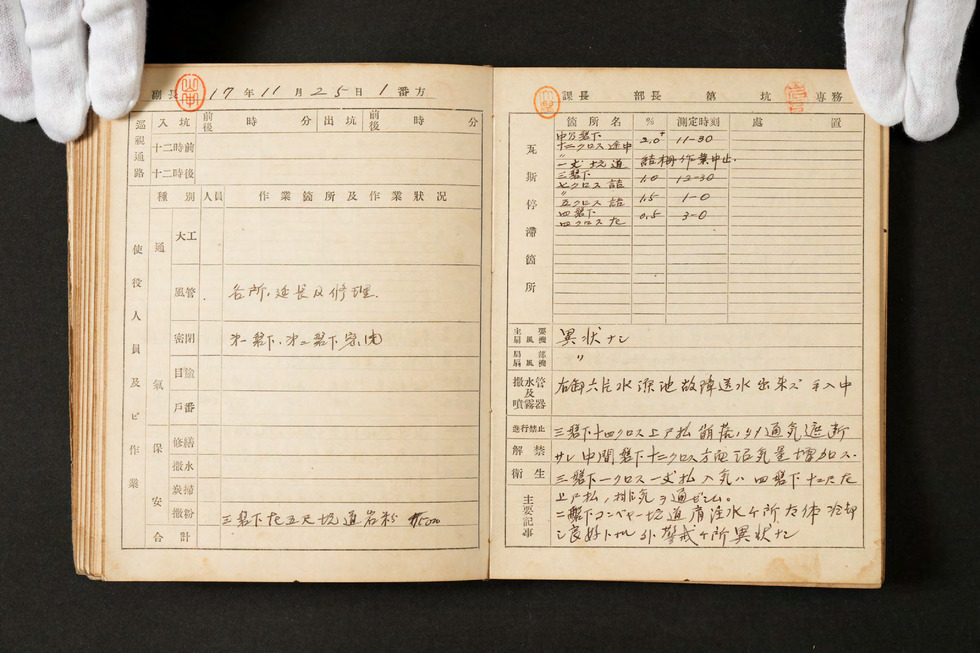 副長 17年11月25日1番方
巡視通路 入坑 前後 時 分 出坑 前後 時 分
十二時前
十二時後
使役人員及ビ作業
種別 人員 作業箇所及作業狀況
通氣
大工
風管 各所、延長及修理.
密閉 第一盤下、第二盤下密閉
目塗
戶番
保安
修繕
撒水
炭掃
撒粉 三盤下左五尺坑道岩粉
合計
課長 部長 第 坑 專務
瓦斯停滯箇所
箇所名 % 測定時刻 處置
中分盤下
十二クロス途中 2.0+ 11-30
〃
一丈坑道 結構作業中止.
三盤下
七クロス詰 1.0 12-30
〃
五クロス詰 1.5 1-0
四盤下
四クロス左 0.5 3-0
主要扇風機 異狀ナシ
局部扇風機 〃
撒水管及噴霧器 右卸六片水溜池故障送水出來ズ手入中
進行禁止
解禁
衛生
主要記事
三盤下十四クロス上戶払崩落ノタメ通気遮断
サレ中間盤下十三クロス方面瓦気量増加ス.
三盤下一クロス一丈払入気ハ四盤下十二尺左
上戶払ノ排気ヲ通ゼシム。
二盤下コンベヤー坑道肩注水ヶ所
良好ナル外警戒ヶ所異狀ナシ